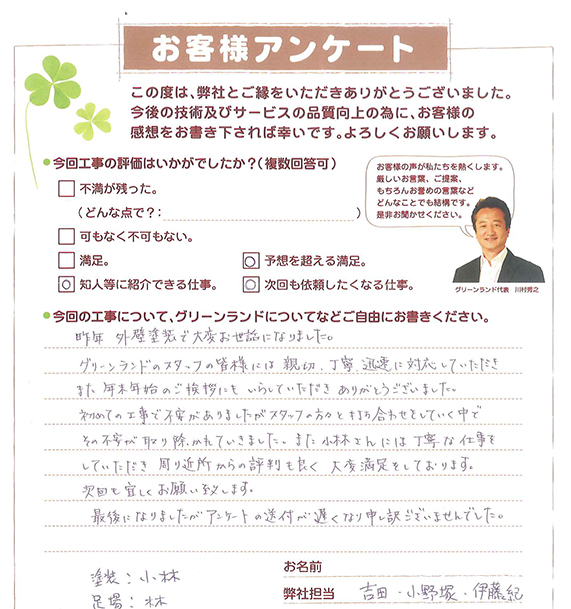 お客様アンケート
この度は、弊社とご縁をいただきありがとうございました。
今後の技術及びサービスの品質向上の為に、お客様の
感想をお書き下されば幸いです。よろしくお願いします。
今回工事の評価はいかがでしたか？（複数回答可）
不満が残った。
（どんな点で？： ）
可もなく不可もない。
満足。
予想を超える満足。
知人等に紹介できる仕事。
次回も依頼したくなる仕事。
お客様の声が私たちを熱くします。
厳しいお言葉、ご提案、
もちろんお誉めの言葉など
どんなことでも結構です。
是非お聞かせください。
グリーンランド代表 川村秀之
今回の工事について、グリーンランドについてなどご自由にお書きください。
昨年 外壁塗装で大変お世話になりました。
グリーンランドのスタッフの皆様には 親切、丁寧、迅速に対応していただき
また、年末年始のご挨拶にも いらしていただき ありがとうございました。
初めての工事で不安がありましたがスタッフの方々と打ち合わせをしていく中で
その不安が取り除かれていきました。また小林さんには丁寧な仕事を
していただき 周り近所からの評判も良く 大変満足をしております。
次回も宜しくお願い致します。
最後になりましたがアンケートの送付が遅くなり申し訳ございませんでした。
塗装：小林
足場：林
お名前
弊社担当 吉田・小野塚・伊藤紀